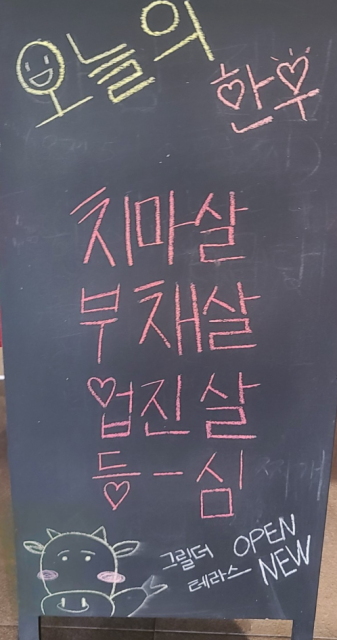 오늘의
한우
치마살
부채살
업진살
등-심
그릴더 OPEN
테라스 NEW